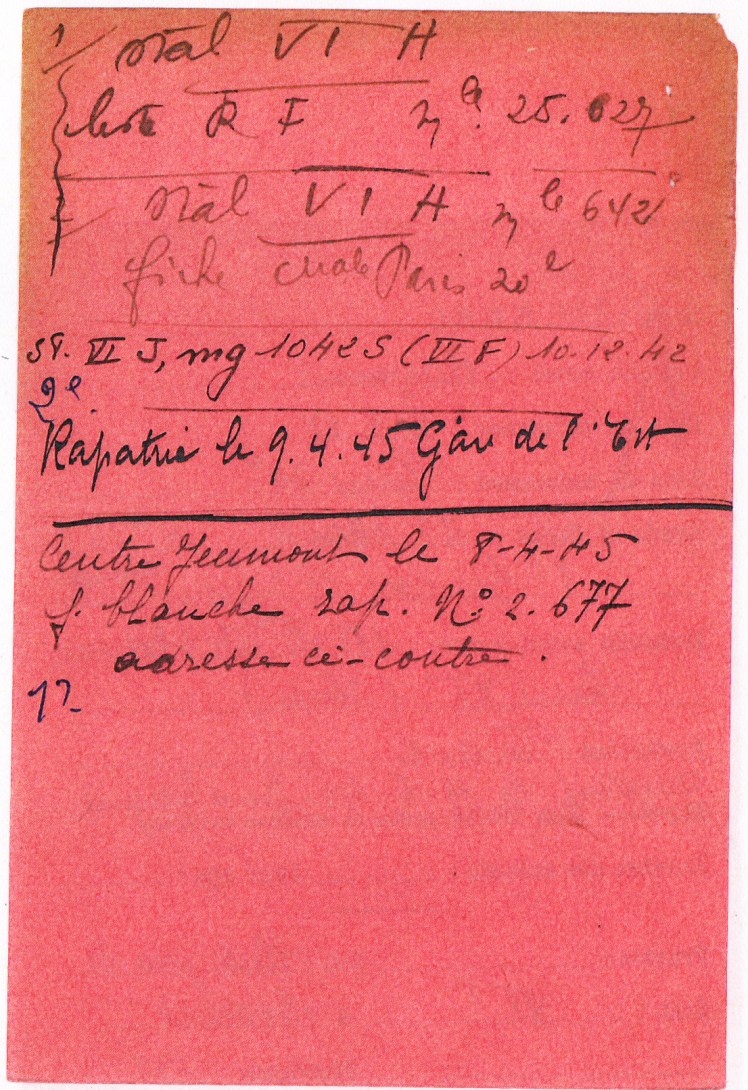 1/ Stal VI H
liste R F mle. 25.627
Stal VI H mle 642
fiche Paris 20e
St. VI J, mg 10425 (VI F) 10.12.42
9e
Rapatrié le 9.4.45 Gare de l'Est
Centre Jeumont le 8-4-45
f. blanche rap. No 2.677
adresse ci-contre.